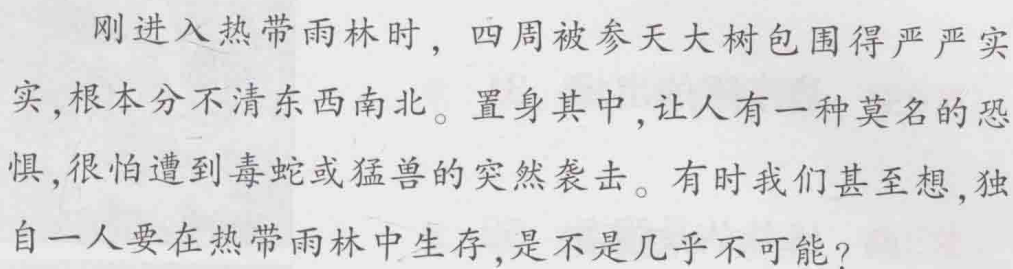 刚进入热带雨林时，四周被参天大树包围得严严实
实，根本分不清东西南北。置身其中，让人有一种莫名的恐
惧，很怕遭到毒蛇或猛兽的突然袭击。有时我们甚至想，独
自一人要在热带雨林中生存，是不是几乎不可能？